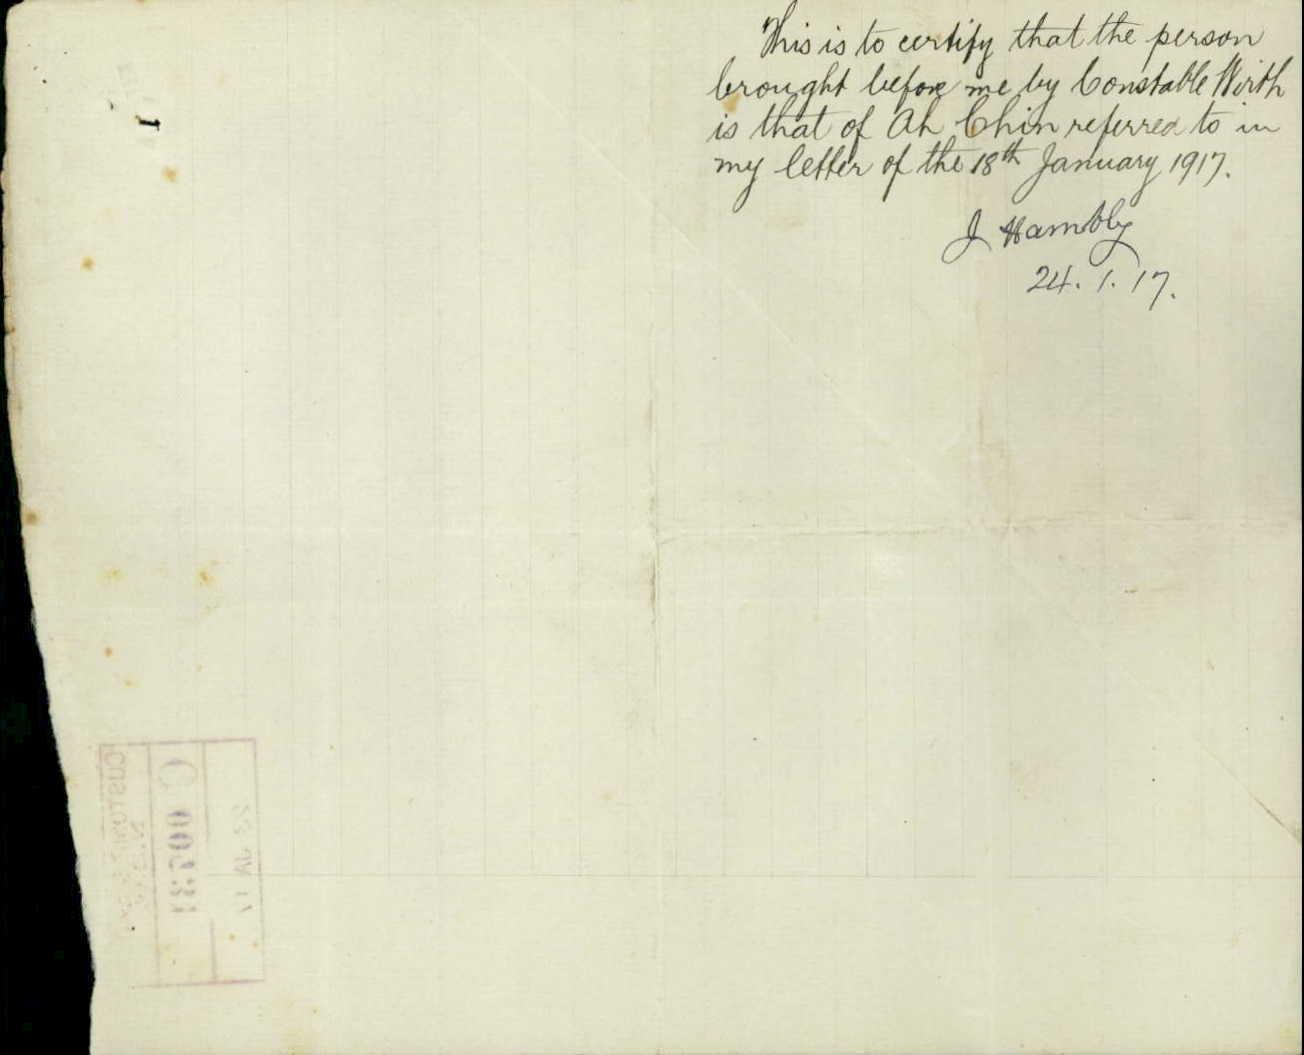 This is to certify that the person
brought before me by Constable Wirth
is that of Ah Chin referred to in
my letter of the 18th January 1917.
J Hambly
24. 1. 17.
CUSTOMS
C